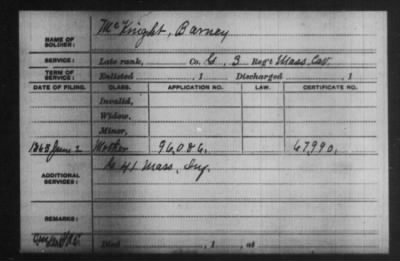 NAME OF SOLDIER: McKnight, Barney
SERVICE: Late rank, Co. G, 3 Reg't Mass Cav.
TERM OF SERVICE: Enlisted , 1 Discharged , 1
DATE OF FILING. CLASS. APPLICATION NO. LAW. CERTIFICATE NO.
Invalid,
Widow,
Minor,
1865 June 2 Mother 96,086. 67990.
ADDITIONAL SERVICES: G 41 Mass. Inf.
REMARKS:
Died , 1 , at